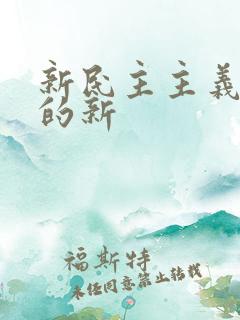 新民主主義
的新
福斯特
未经同意禁止转载